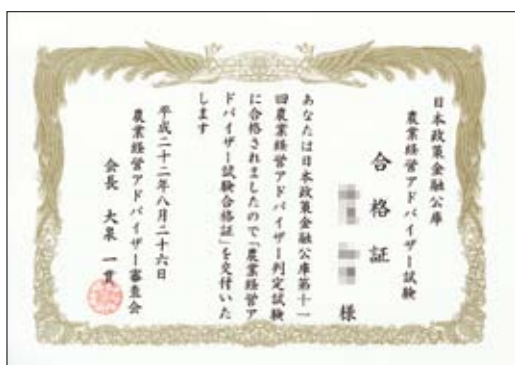 日本政策金融公庫
農業経営アドバイザー試験
合格証
様
あなたは日本政策金融公庫第十一
回農業経営アドバイザー判定試験
に合格されましたので「農業経営ア
ドバイザー試験合格証」を交付いた
します
平成二十二年八月二十六日
農業経営アドバイザー審査会
会長 大泉一貫